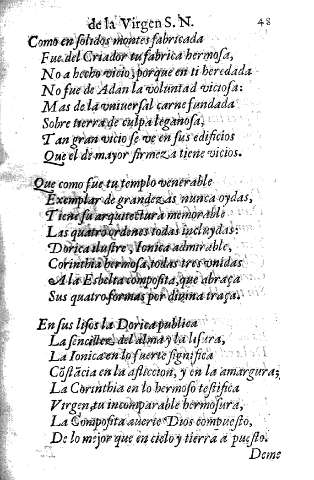 de la Virgen S. N. 48
Como en solidos montes fabricada
Fue del Criador tu fabrica hermosa,
No a hecho vicio, porque en ti heredada
No fue de Adan la voluntad viciosa:
Mas de la vniuersal carne fundada
Sobre tierra de culpa leganosa,
Tan gran vicio se ve en sus edificios
Que el de mayor firmeza tiene vicios.
Que como fue tu templo venerable
Exemplar de grandezas nunca oydas,
Tiene su arquitectura memorable
Las quatro ordenes todas incluydas:
Dorica ilustre, Ionica admirable,
Corinthia hermosa, todas tres vnidas
A la Esbelta composita, que abraça
Sus quatro formas por diuina traça.
En sus lisos la Dorica publica
La sencillez del alma y la lisura,
La Ionica en lo fuerte significa
Cõstãcia en la afliccion, y en la amargura;
La Corinthia en lo hermoso testifica
Virgen, tu incomparable hermosura,
La Composita auerte Dios compuesto,
De lo mejor que en cielo y tierra à puesto.
Deme